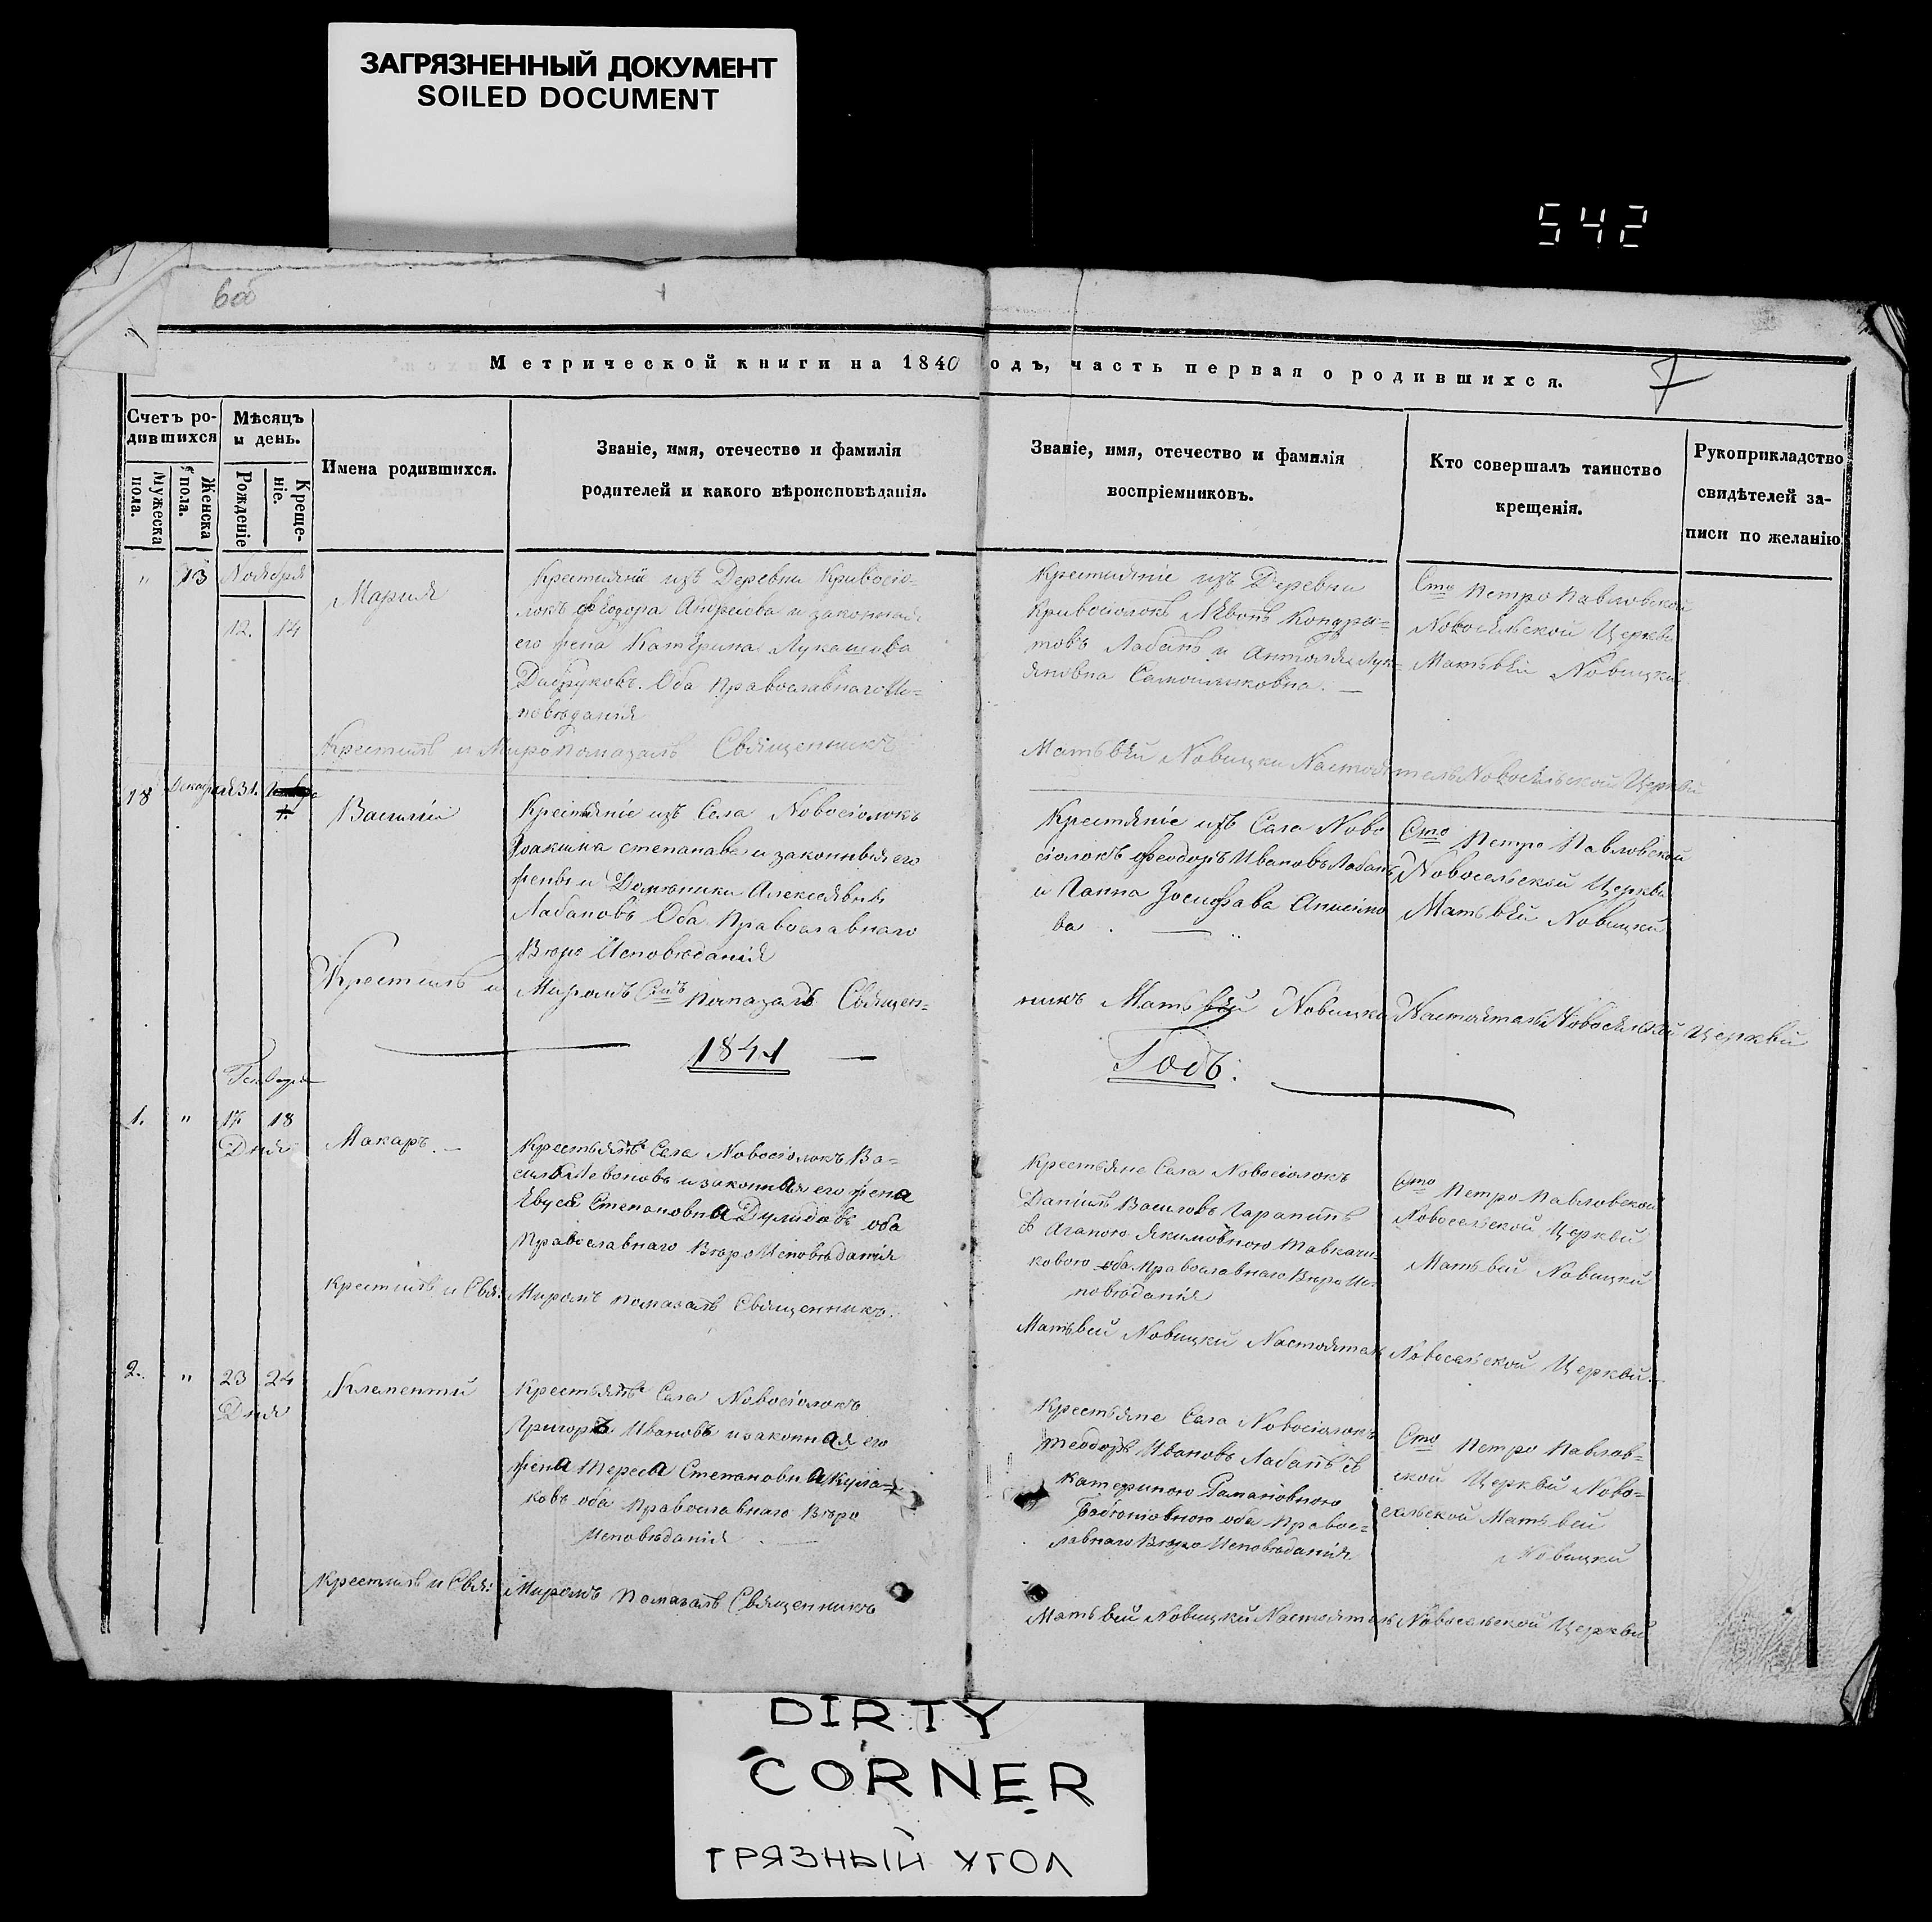 ЗАГРЯЗНЕННЫЙ ДОКУМЕНТ
SOILED DOCUMENT
542
6об
Метрической книги на 1840 одъ, часть первая о родившихся.
7
Счетъ ро-
дившихся
Мужеска
пола.
Женска
пола.
Мѣсяцъ
и день.
Рожденіе
Креще-
ніе.
Имена родившихся.
Званіе, имя, отечество и фамилія
родителей и какого вѣроисповѣданія.
Званіе, имя, отечество и фамилія
воспріемниковъ.
Кто совершалъ таинство
крещенія.
Рукоприкладство
свидѣтелей за-
писи по желанію
" 13 Ноября
12. 14
Мария
изъ Деревни Кривосіо-
локъ Ѳеодора Андреева и законная
его жена Катерина Лукашова
Оба Православнаго Ис-
поведанія
Крестьяніе изъ Деревни
Кривосіолокъ Левонъ Кондра-
товъ Лабанъ и Лук-
яновна
Сто Петро Павловской
Новосельской Церкви
Матьвей Новицкий
Крестилъ и Миропомазалъ Священникъ
Матьвей Новицки Настоятель Новосельской Церкви
18 Декабря 31.
1.
Василіи
Крестьяніе изъ Села Новосіолокъ
Іоакима степанава и законныя его
жены Домъники Алексеявны
Лабановъ Оба Православнаго
Вѣро Исповѣданія
Крестяніе изъ Села Ново
сіолокъ Феодоръ Ивановъ Лабанъ
и Ганна Іосифава Анисимо
ва
Сто Петро Павловской
Новосельской Церкви
Матьвей Новицкий
Крестилъ и Миромъ Стъ помазалъ Священ-
никъ Матьвей Новицки Настоятель Новосельской Церквй
1841
Годъ.
Генваря
1. " 17 18
Дня
Макаръ.
Крестьянъ Села Новосіолокъ Ва-
силь Левоновъ и законная его жена
Евуся Степановна Дулидовъ оба
Православнаго Вѣро Исповѣданія
Крестьяне Села Новосіолокъ
Даніилъ Василовъ Гарапинъ
съ Агапою Якимовною
ковою оба Православнаго Вѣро Ис
повѣданія
Сто Петро Павловской
Новосельской Церквй
Матьвей Новицкй
Крестилъ и Свя: Миромъ помазалъ Священникъ.
Матьвей Новицкй Настоятель Новосельской Церквй.
2. " 23 24
Дня
Климентій
Крестьянъ Села Новосіолокъ
Григоръ Ивановъ и законная его
жена Тереса Степановна Кула-
ковъ оба Православнаго Вѣро
Исповѣданія
Крестьяне Села Новосіолокъ
Теодоръ Ивановъ Лабанъ съ
Катериною Рамановною
оба Правос-
лавнаго Вѣро Исповѣданія
Сто Петро Павлов-
ской Церквй Ново-
сельской Матьвей
Новицкй
Крестилъ и Свя: Миромъ помазалъ Священникъ
Матьвей Новицкй Настоятель Новосельской Церквй
DIRTY
CORNER
ГРЯЗНЫЙ УГОЛ